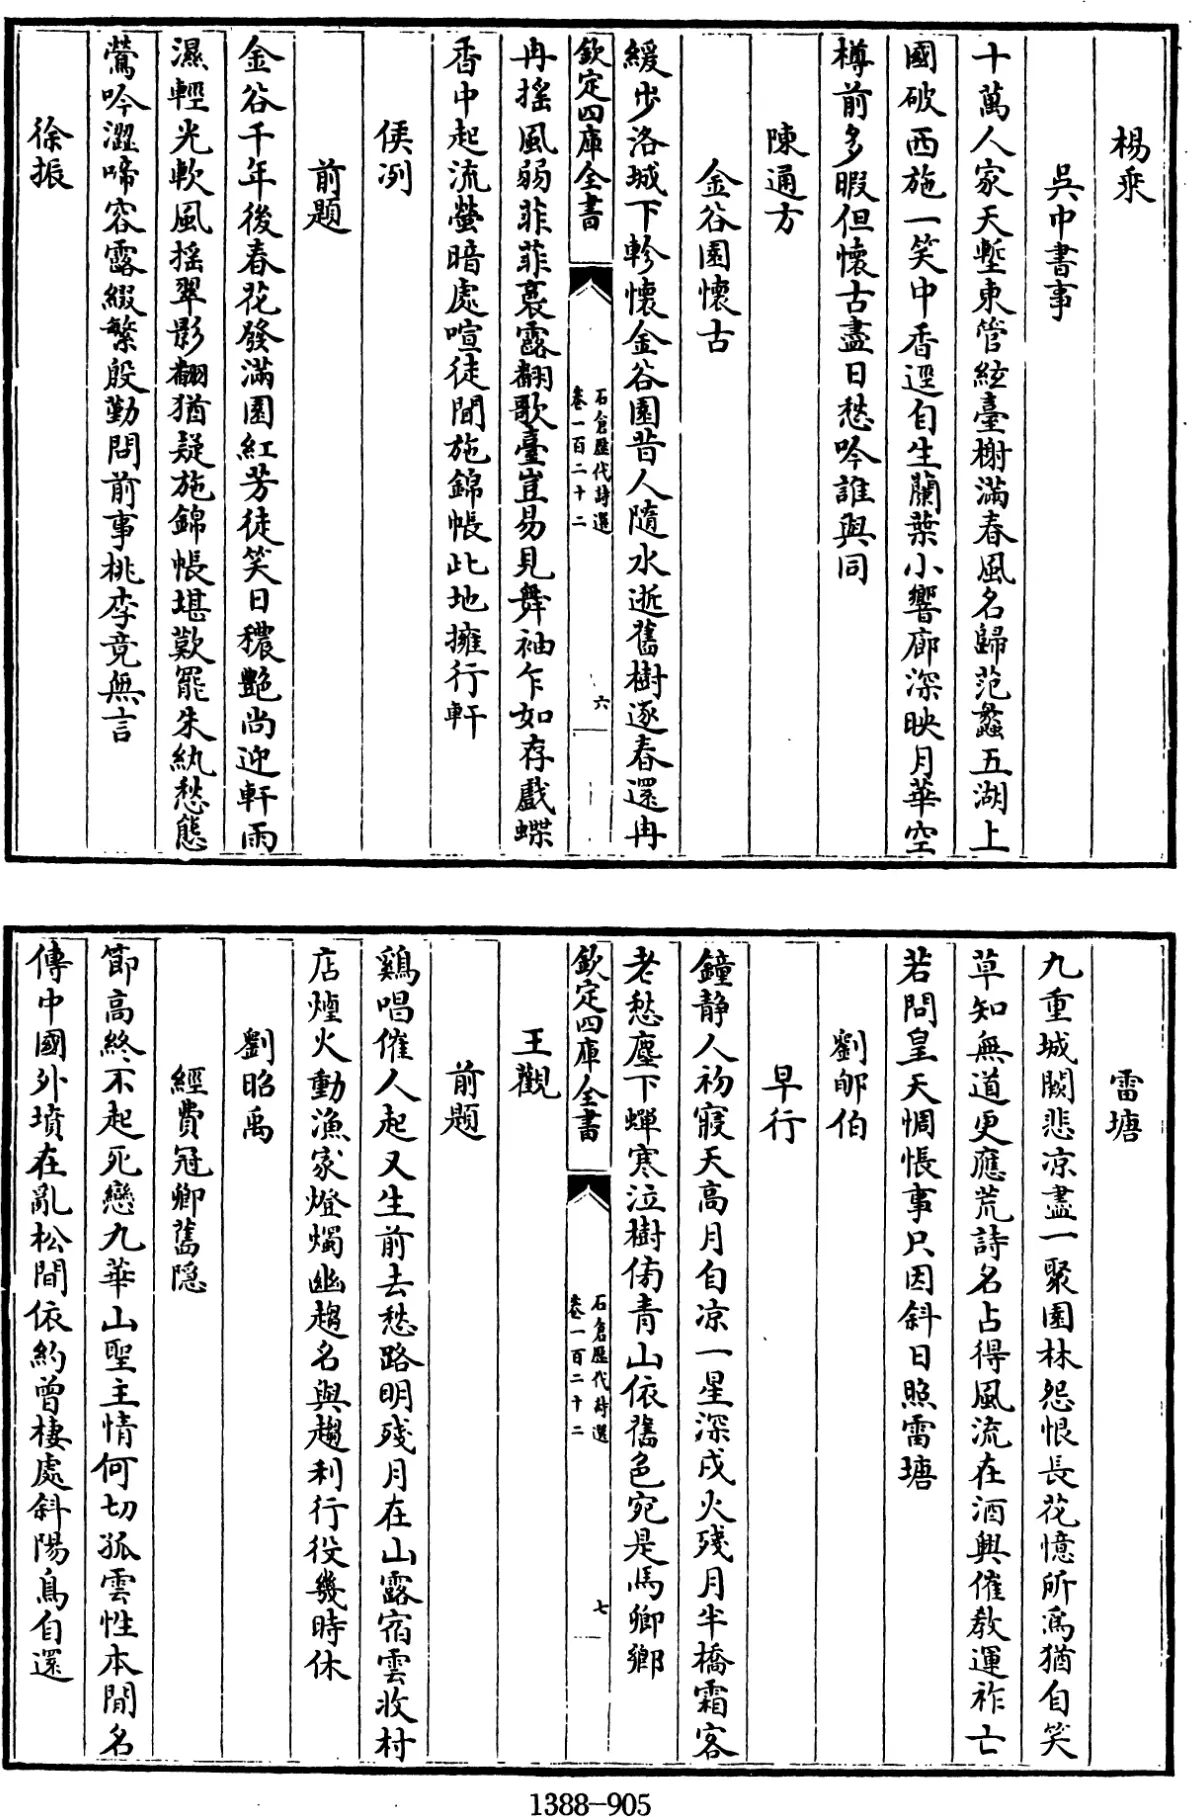 楊乘
吳中書事
十萬人家天塹東管絃臺榭滿春風名歸范蠡五湖上
國破西施一笑中香逕自生蘭葉小響廊深映月華空
樽前多暇但懷古盡日愁吟誰與同
陳通方
金谷園懷古
緩步洛城下軫懷金谷園昔人隨水逝舊樹逐春還冉
欽定四庫全書
石倉歷代詩選
卷一百二十二
六
冉搖風弱菲菲裛露翻歌臺豈易見舞袖乍如存戲蝶
香中起流螢暗處喧徒聞施錦帳此地擁行軒
侯冽
前題
金谷千年後春花發滿園紅芳徒笑日穠艷尚迎軒雨
濕輕光軟風搖翠影翻猶疑施錦帳堪歎罷朱紈愁態
鶯吟澀啼容露綴繁殷勤問前事桃李竟無言
徐振
雷塘
九重城闕悲涼盡一聚園林怨恨長花憶所為猶自笑
草知無道更應荒詩名占得風流在酒興催教運祚亡
若問皇天惆悵事只因斜日照雷塘
劉郇伯
早行
鐘静人初寢天高月自凉一星深戍火殘月半橋霜客
老愁塵下蟬寒泣樹傍青山依舊色宛是馬卿鄉
欽定四庫全書
石倉歷代詩選
卷一百二十二
七
王觀
前題
鷄唱催人起又生前去愁路明殘月在山露宿雲收村
店煙火動漁家燈燭幽趨名與趨利行役幾時休
劉昭禹
經費冠卿舊隱
節高終不起死戀九華山聖主情何切孤雲性本閒名
傳中國外墳在亂松間依約曾棲處斜陽鳥自還
1388-905